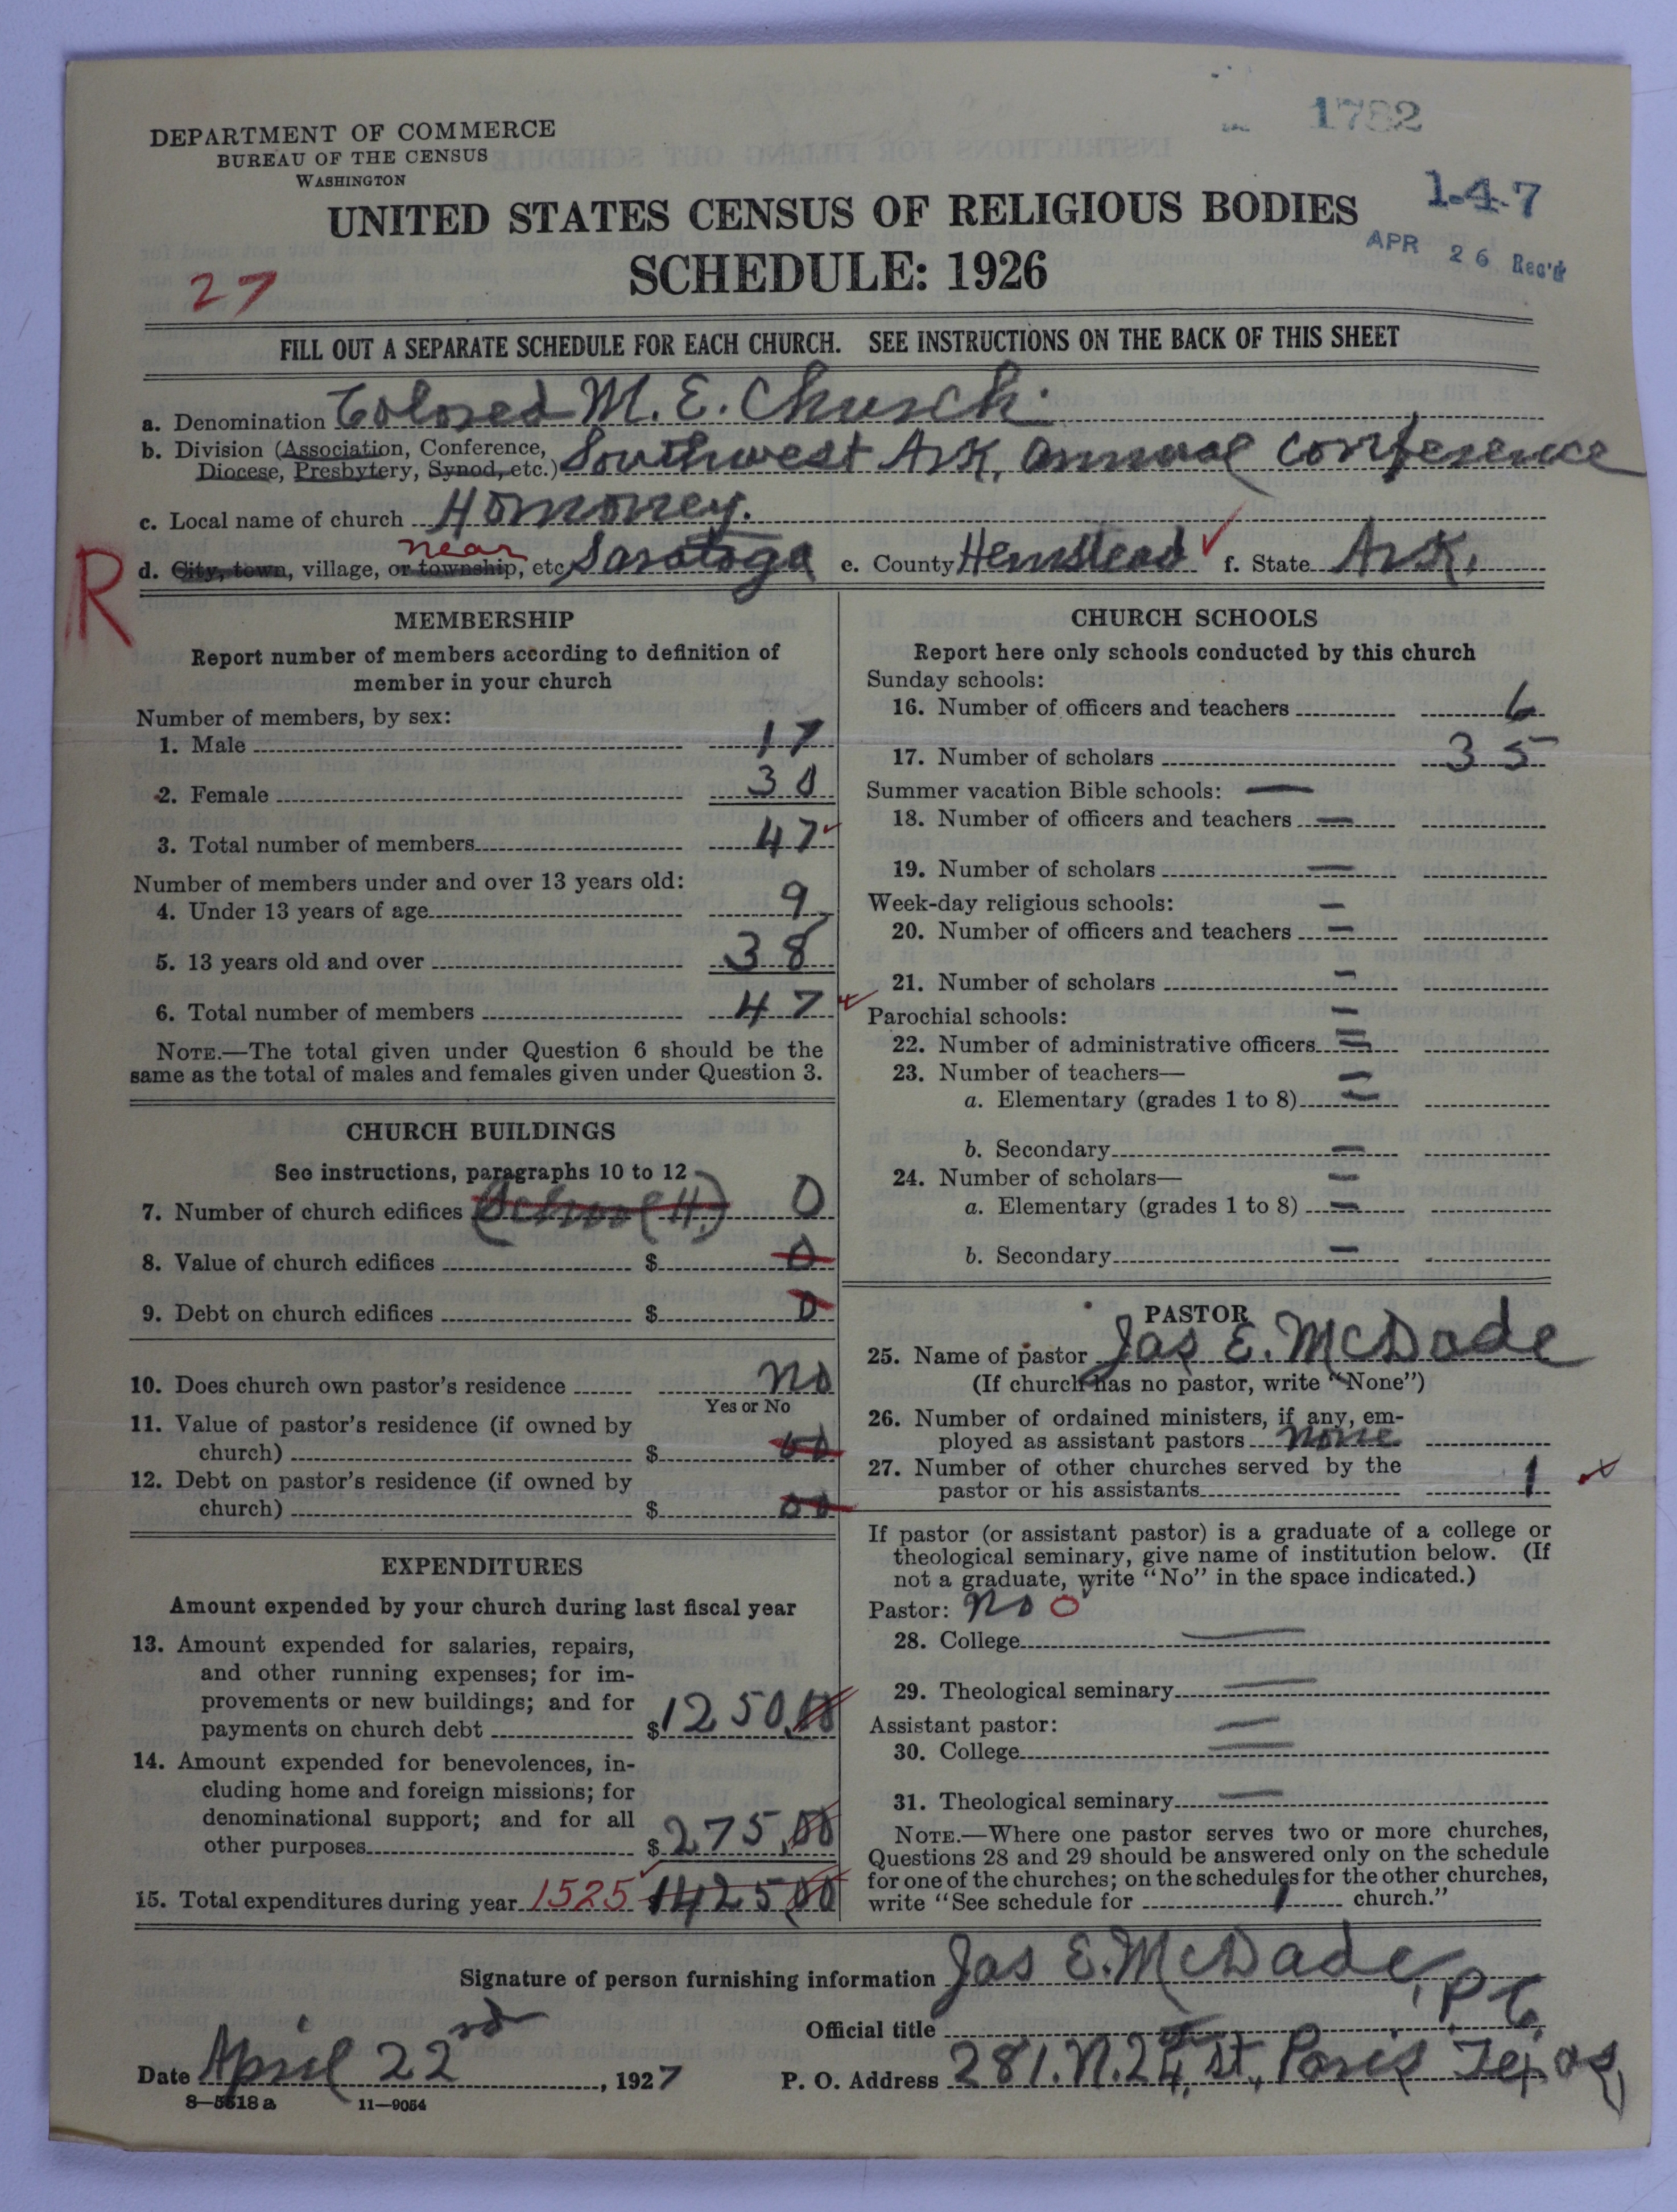 1782
DEPARTMENT OF COMMERCE
BUREAU OF THE CENSUS
WASHINGTON
1-4-7
UNITED STATES CENSUS OF RELIGIOUS BODIES
APR 26 Rec'd
SCHEDULE: 1926
27
FILL OUT A SEPARATE SCHEDULE FOR EACH CHURCH. SEE INSTRUCTIONS ON THE BACK OF THIS SHEET
a. Denomination Colored M. E. Church.
b. Division (Association, Conference, Diocese, Presbytery, Synod, etc.) Southwest Ark, annual Conference
c. Local name of church Homoney.
R
d. City, town, village, or township, etc near Saratoga e. County Hemstead f. State Ark.
MEMBERSHIP
Report number of members according to definition of
member in your church
Number of members, by sex:
1. Male 17
2. Female 30
3. Total number of members 47
Number of members under and over 13 years old:
4. Under 13 years of age 9
5. 13 years old and over 38
6. Total number of members 47
NOTE.—The total given under Question 6 should be the
same as the total of males and females given under Question 3.
CHURCH BUILDINGS
See instructions, paragraphs 10 to 12
7. Number of church edifices (School H.) 0
8. Value of church edifices $ 0
9. Debt on church edifices $ 0
10. Does church own pastor's residence no
Yes or No
11. Value of pastor's residence (if owned by
church) $ 00
12. Debt on pastor's residence (if owned by
church) $ 00
EXPENDITURES
Amount expended by your church during last fiscal year
13. Amount expended for salaries, repairs,
and other running expenses; for im-
provements or new buildings; and for
payments on church debt $1250.00
14. Amount expended for benevolences, in-
cluding home and foreign missions; for
denominational support; and for all
other purposes $275.00
15. Total expenditures during year 1525 142500
CHURCH SCHOOLS
Report here only schools conducted by this church
Sunday schools:
16. Number of officers and teachers 6
17. Number of scholars 35
Summer vacation Bible schools: —
18. Number of officers and teachers —
19. Number of scholars —
Week-day religious schools: —
20. Number of officers and teachers —
21. Number of scholars —
Parochial schools: —
22. Number of administrative officers —
23. Number of teachers— —
a. Elementary (grades 1 to 8) —
b. Secondary —
24. Number of scholars— —
a. Elementary (grades 1 to 8) —
b. Secondary —
PASTOR
25. Name of pastor Jas E. McDade
(If church has no pastor, write "None")
26. Number of ordained ministers, if any, em-
ployed as assistant pastors none
27. Number of other churches served by the
pastor or his assistants 1
If pastor (or assistant pastor) is a graduate of a college or
theological seminary, give name of institution below. (If
not a graduate, write "No" in the space indicated.)
Pastor: no 0
28. College —
29. Theological seminary —
Assistant pastor: —
30. College —
31. Theological seminary —
NOTE.—Where one pastor serves two or more churches,
Questions 28 and 29 should be answered only on the schedule
for one of the churches; on the schedules for the other churches,
write "See schedule for 1 church."
Signature of person furnishing information Jas E. McDade,
Official title P. C.
Date April 22nd, 1927 P. O. Address 281. N. 24, St., Paris Texas,
8—5518 a 11—9054